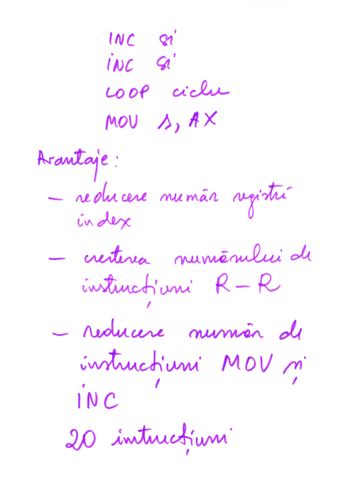 INC si
INC si
LOOP ciclu
MOV s, AX
Avantaje:
- reducere număr regiștri
index
- creșterea numărului de
instrucțiuni R-R
- reducere număr de
instrucțiuni MOV și
INC
20 instrucțiuni